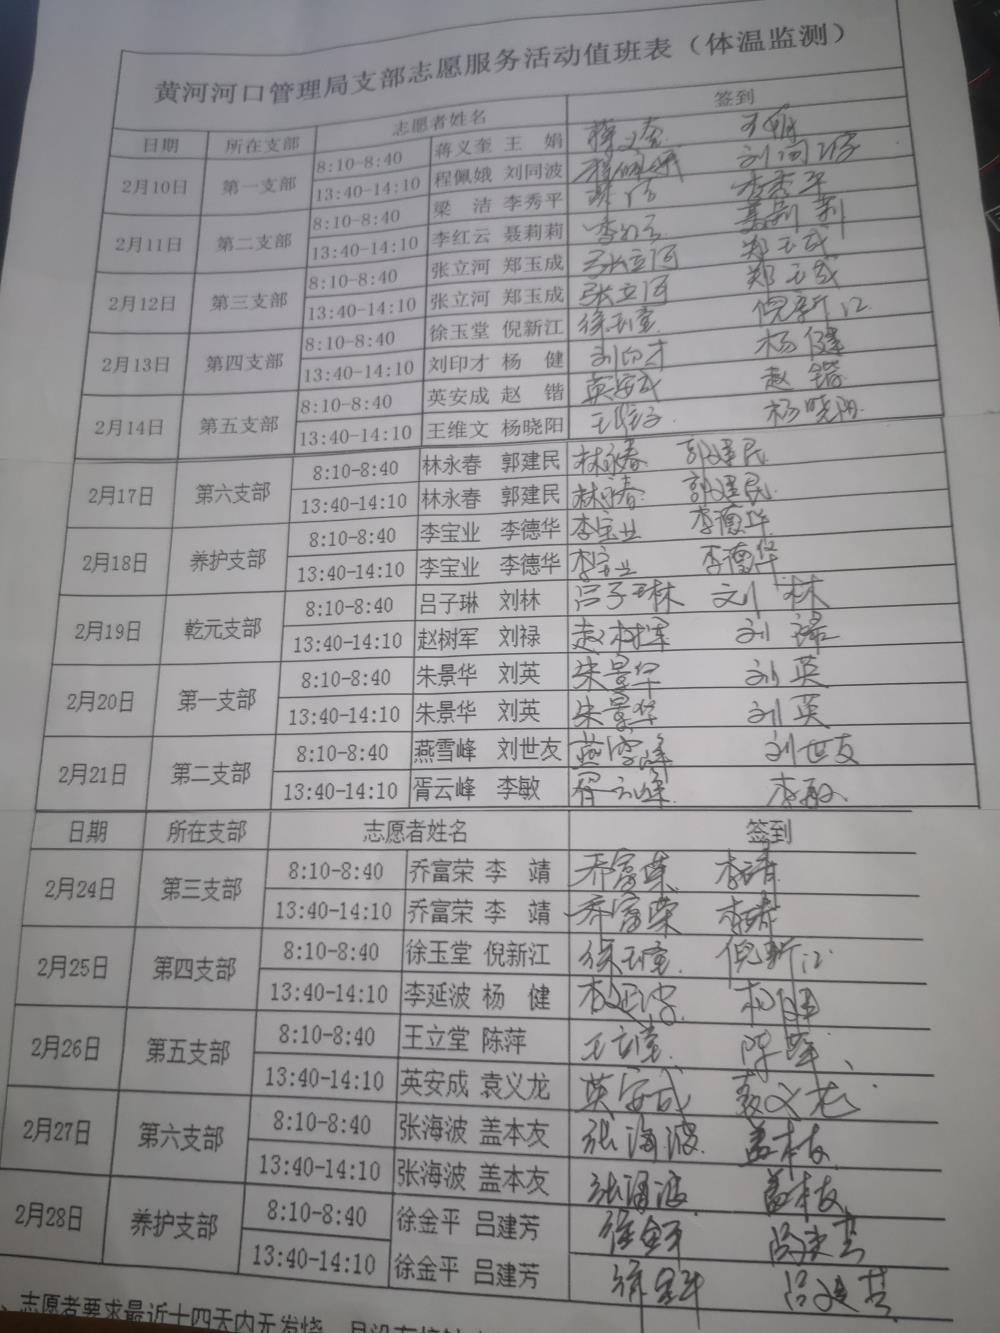 黄河河口管理局支部志愿服务活动值班表（体温监测）
日期 所在支部 志愿者姓名 签到
2月10日 第一支部 8:10-8:40 蒋义奎 王 娟 蒋义奎 王娟
13:40-14:10 程佩娥 刘同波 程佩娥 刘同波
2月11日 第二支部 8:10-8:40 梁 洁 李秀平 梁洁 李秀平
13:40-14:10 李红云 聂莉莉 李红云 聂莉莉
2月12日 第三支部 8:10-8:40 张立河 郑玉成 张立河 郑玉成
13:40-14:10 张立河 郑玉成 张立河 郑玉成
2月13日 第四支部 8:10-8:40 徐玉堂 倪新江 徐玉堂 倪新江
13:40-14:10 刘印才 杨 健 刘印才 杨健
2月14日 第五支部 8:10-8:40 英安成 赵 锴 英安成 赵锴
13:40-14:10 王维文 杨晓阳 杨晓阳
2月17日 第六支部 8:10-8:40 林永春 郭建民 林永春 郭建民
13:40-14:10 林永春 郭建民 林永春 郭建民
2月18日 养护支部 8:10-8:40 李宝业 李德华 李宝业 李德华
13:40-14:10 李宝业 李德华 李宝业 李德华
2月19日 乾元支部 8:10-8:40 吕子琳 刘林 吕子琳 刘林
13:40-14:10 赵树军 刘禄 赵树军 刘禄
2月20日 第一支部 8:10-8:40 朱景华 刘英 朱景华 刘英
13:40-14:10 朱景华 刘英 朱景华 刘英
2月21日 第二支部 8:10-8:40 燕雪峰 刘世友 燕雪峰 刘世友
13:40-14:10 胥云峰 李敏 胥云峰 李敏
日期 所在支部 志愿者姓名 签到
2月24日 第三支部 8:10-8:40 乔富荣 李 靖 乔富荣 李靖
13:40-14:10 乔富荣 李 靖 乔富荣 李靖
2月25日 第四支部 8:10-8:40 徐玉堂 倪新江 徐玉堂 倪新江
13:40-14:10 李延波 杨 健 李延波 杨健
2月26日 第五支部 8:10-8:40 王立堂 陈萍 王立堂 陈萍
13:40-14:10 英安成 袁义龙 英安成 袁义龙
2月27日 第六支部 8:10-8:40 张海波 盖本友 张海波 盖本友
13:40-14:10 张海波 盖本友 张海波 盖本友
2月28日 养护支部 8:10-8:40 徐金平 吕建芳 徐金平 吕建芳
13:40-14:10 徐金平 吕建芳 徐金平 吕建芳
、志愿者要求最近十四天内无发烧，且没有接触